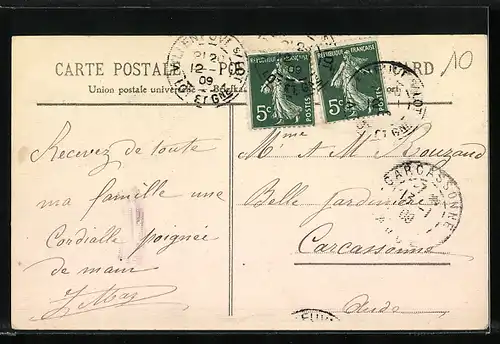 10
CARTE POSTALE
REPUBLIQUE FRANÇAISE
5c POSTES
REPUBLIQUE FRANÇAISE
5c POSTES
Union postale universelle
Recevez de toute
ma famille une
Cordialle poignée
de main
Mr & Mme Rouzaud
Belle Jardinière
Carcassonne
Aude
CARCASSONNE
LOT ET GNE
09